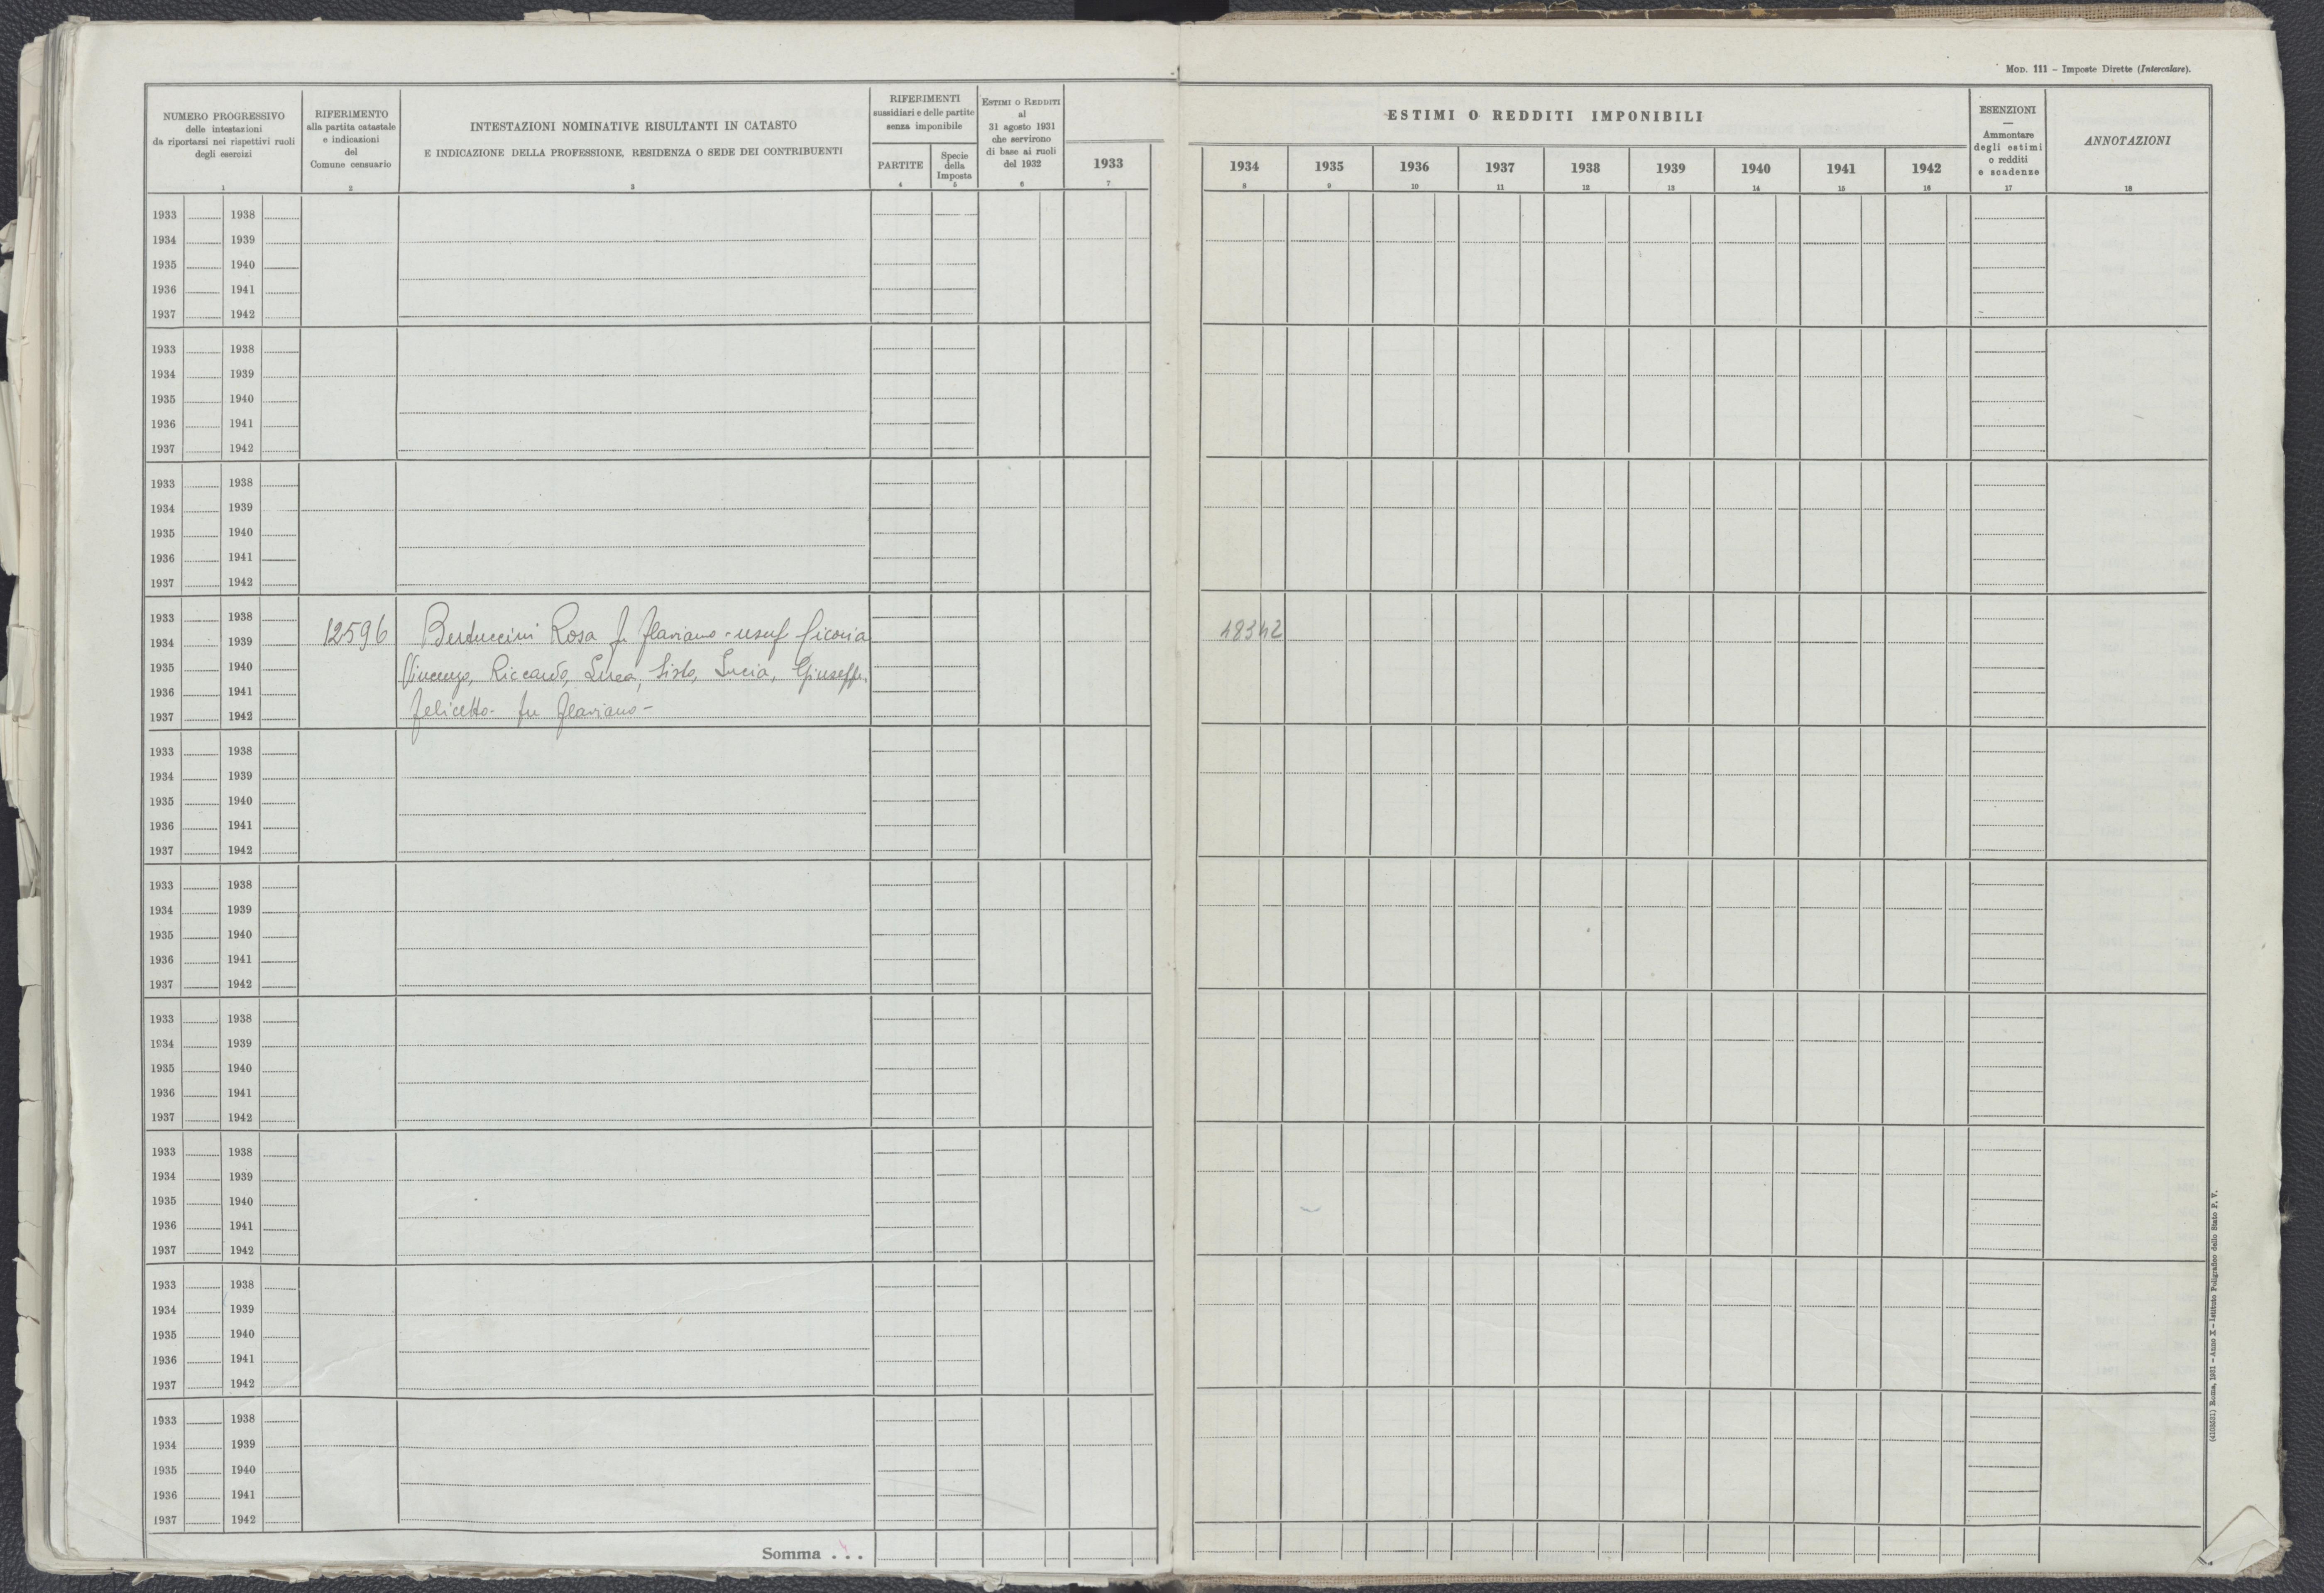 MOD. 111 – Imposte Dirette (Intercalare).
NUMERO PROGRESSIVO
delle intestazioni
da riportarsi nei rispettivi ruoli
degli esercizi
1
RIFERIMENTO
alla partita catastale
e indicazioni
del
Comune censuario
2
INTESTAZIONI NOMINATIVE RISULTANTI IN CATASTO
E INDICAZIONE DELLA PROFESSIONE, RESIDENZA O SEDE DEI CONTRIBUENTI
3
RIFERIMENTI
sussidiari e delle partite
senza imponibile
PARTITE
4
Specie
della
Imposta
5
ESTIMI O REDDITI
al
31 agosto 1931
che servirono
di base ai ruoli
del 1932
6
1933
7
ESTIMI O REDDITI IMPONIBILI
1934 1935 1936 1937 1938 1939 1940 1941 1942
8 9 10 11 12 13 14 15 16
ESENZIONI
—
Ammontare
degli estimi
o redditi
e scadenze
17
ANNOTAZIONI
18
1933 1938
1934 1939
1935 1940
1936 1941
1937 1942
1933 1938
1934 1939
1935 1940
1936 1941
1937 1942
1933 1938
1934 1939
1935 1940
1936 1941
1937 1942
1933 1938
1934 1939 12596 Bertuccini Rosa f. Flaviano - usuf Ciconia
1935 1940 Vincenzo, Riccardo, Luca, Sisto, Lucia, Giuseppe,
1936 1941
1937 1942 Felicetto - fu Flaviano -
1933 1938
1934 1939
1935 1940
1936 1941
1937 1942
1933 1938
1934 1939
1935 1940
1936 1941
1937 1942
1933 1938
1934 1939
1935 1940
1936 1941
1937 1942
1933 1938
1934 1939
1935 1940
1936 1941
1937 1942
1933 1938
1934 1939
1935 1940
1936 1941
1937 1942
1933 1938
1934 1939
1935 1940
1936 1941
1937 1942
Somma . . .
(4103631) Roma, 1931 – Anno X – Istituto Poligrafico dello Stato P. V.